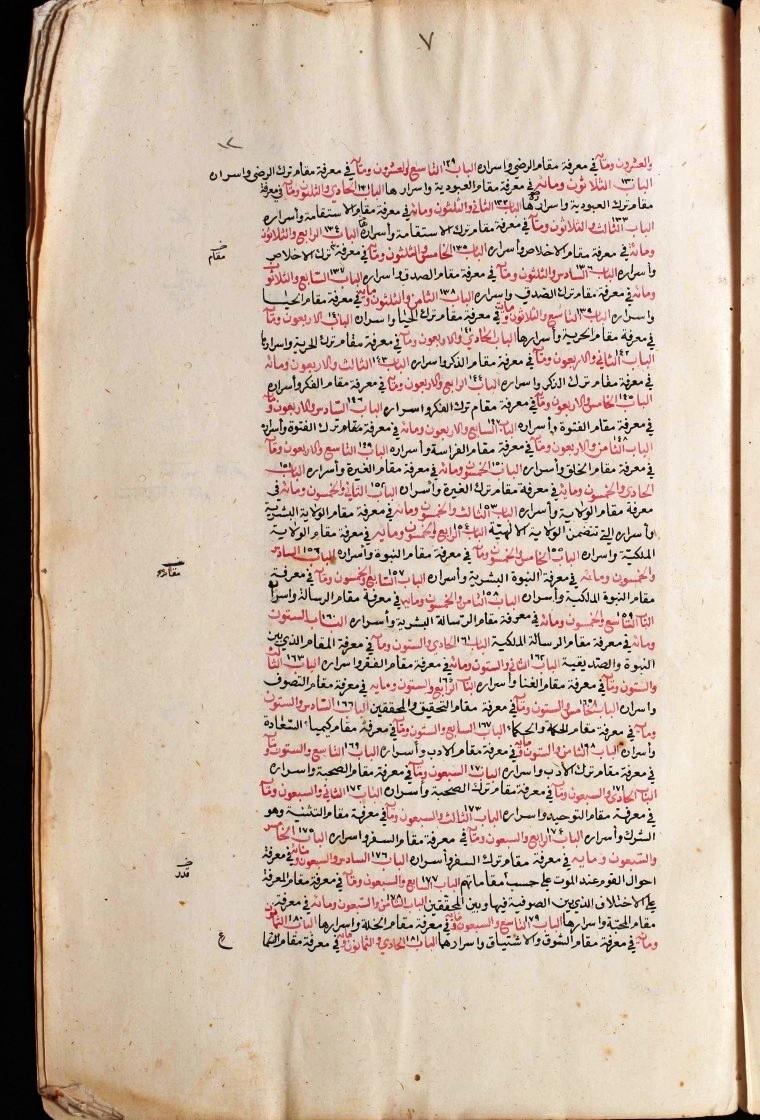 ٧
١٢
والعشرون ومائة في معرفة مقام الرضى واسراره الباب ١٢٩ التاسع والعشرون ومائة في معرفة مقام ترك الرضى واسراره
الباب ١٣٠ الثلاثون ومائة في معرفة مقام العبودية واسرارها الباب ١٣١ الحادي والثلثون ومائة في معرفة
مقام ترك العبودية واسرارها الباب ١٣٢ الثاني والثلثون ومائة في معرفة مقام الاستقامة واسراره
الباب ١٣٣ الثالث والثلاثون ومائة في معرفة مقام ترك الاستقامة واسرارها الباب ١٣٤ الرابع والثلاثون
ومائة في معرفة مقام الاخلاص واسراره الباب ١٣٥ الخامس والثلثون ومائة في معرفة ترك الاخلاص
مقام
واسراره الباب ١٣٦ السادس والثلثون ومائة في معرفة مقام الصدق واسراره الباب ١٣٧ السابع والثلاثون
ومائة في معرفة مقام ترك الصدق واسراره الباب ١٣٨ الثامن والثلثون ومائة في معرفة مقام الحيا
واسراره الباب ١٣٩ التاسع والثلاثون ومائة في معرفة مقام ترك الحيا واسراره الباب ١٤٠ الاربعون ومائة
في معرفة مقام الحرية وأسرارها الباب ١٤١ الحادي والاربعون ومائة في معرفة مقام ترك الحرية واسرارها
الباب ١٤٢ الثاني والاربعون ومائة في معرفة مقام الذكر واسراره الباب ١٤٣ الثالث والاربعون ومائة
في معرفة مقام ترك الذكر واسراره الباب ١٤٤ الرابع والاربعون ومائة في معرفة مقام الفكر وأسراره
الباب ١٤٥ الخامس والاربعون ومائة في معرفة مقام ترك الفكر واسراره الباب ١٤٦ السادس والاربعون ومائة
في معرفة مقام الفتوة وأسراره الباب ١٤٧ السابع والاربعون ومائة في معرفة مقام ترك الفتوة وأسراره
الباب ١٤٨ الثامن والاربعون ومائة في معرفة مقام الفراسة وأسراره الباب ١٤٩ التاسع والاربعون ومائة
في معرفة مقام الخلق وأسراره الباب ١٥٠ الخمسون ومائة في معرفة مقام الغيرة وأسراره الباب ١٥١
الحادي والخمسون ومائة في معرفة مقام ترك الغيرة وأسراره الباب ١٥٢ الثاني والخمسون ومائة في
معرفة مقام الولاية وأسراره الباب ١٥٣ الثالث والخمسون ومائة في معرفة مقام الولاية البشرية
وأسراره التي تتضمن الولاية الالهية الباب ١٥٤ الرابع والخمسون ومائة في معرفة مقام الولاية
الملكية واسراره الباب ١٥٥ الخامس والخمسون ومائة في معرفة مقام النبوة واسراره الباب ١٥٦ السادس
والخمسون ومائة في معرفة النبوة البشرية وأسراره الباب ١٥٧ السابع والخمسون ومائة في معرفة
مقام النبوة الملكية وأسراره الباب ١٥٨ الثامن والخمسون ومائة في معرفة مقام الرسالة واسراره
الباب ١٥٩ التاسع والخمسون ومائة في معرفة مقام الرسالة البشرية وأسراره الباب ١٦٠ الستون
ومائة في معرفة مقام الرسالة الملكية الباب ١٦١ الحادي والستون ومائة في معرفة المقام الذي بين
النبوة والصديقية الباب ١٦٢ الثاني والستون ومائة في معرفة مقام الفقر واسراره الباب ١٦٣ الثالث
والستون ومائة في معرفة مقام الغنا وأسراره الباب ١٦٤ الرابع والستون ومائة في معرفة مقام التصوف
واسراره الباب ١٦٥ الخامس والستون ومائة في معرفة مقام التحقيق والمحققين الباب ١٦٦ السادس والستون
ومائة في معرفة مقام الحكمة والحكماء الباب ١٦٧ السابع والستون ومائة في معرفة مقام كيمياء السعادة
وأسراره الباب ١٦٨ الثامن والستون ومائة في معرفة مقام الادب وأسراره الباب ١٦٩ التاسع والستون ومائة
في معرفة مقام ترك الأدب واسراره الباب ١٧٠ السبعون ومائة في معرفة مقام الصحبة واسراره
الباب ١٧١ الحادي والسبعون ومائة في معرفة مقام ترك الصحبة وأسراره الباب ١٧٢ الثاني والسبعون ومائة
في معرفة مقام التوحيد واسراره الباب ١٧٣ الثالث والسبعون ومائة في معرفة مقام التثنية وهو
الشرك وأسراره الباب ١٧٤ الرابع والسبعون ومائة في معرفة مقام السفر واسراره الباب ١٧٥ الخامس
والسبعون ومايه في معرفة مقام ترك السفر وأسراره الباب ١٧٦ السادس والسبعون ومائة في معرفة
احوال القوم عند الموت على حسب مقاماتهم الباب ١٧٧ السابع والسبعون ومائة في معرفة مقام المعرفة
على الاختلاف الذي بين الصوفية فيها وبين المحققين الباب ١٧٨ الثامن والسبعون ومائة في معرفة
مقام المحبة واسرارها الباب ١٧٩ التاسع والسبعون ومائة في معرفة مقام الخلة واسرارها الباب ١٨٠ الثمانون
ومائة في معرفة مقام الشوق والاشتياق واسرارها الباب ١٨١ الحادي والثمانون ومائة في معرفة مقام